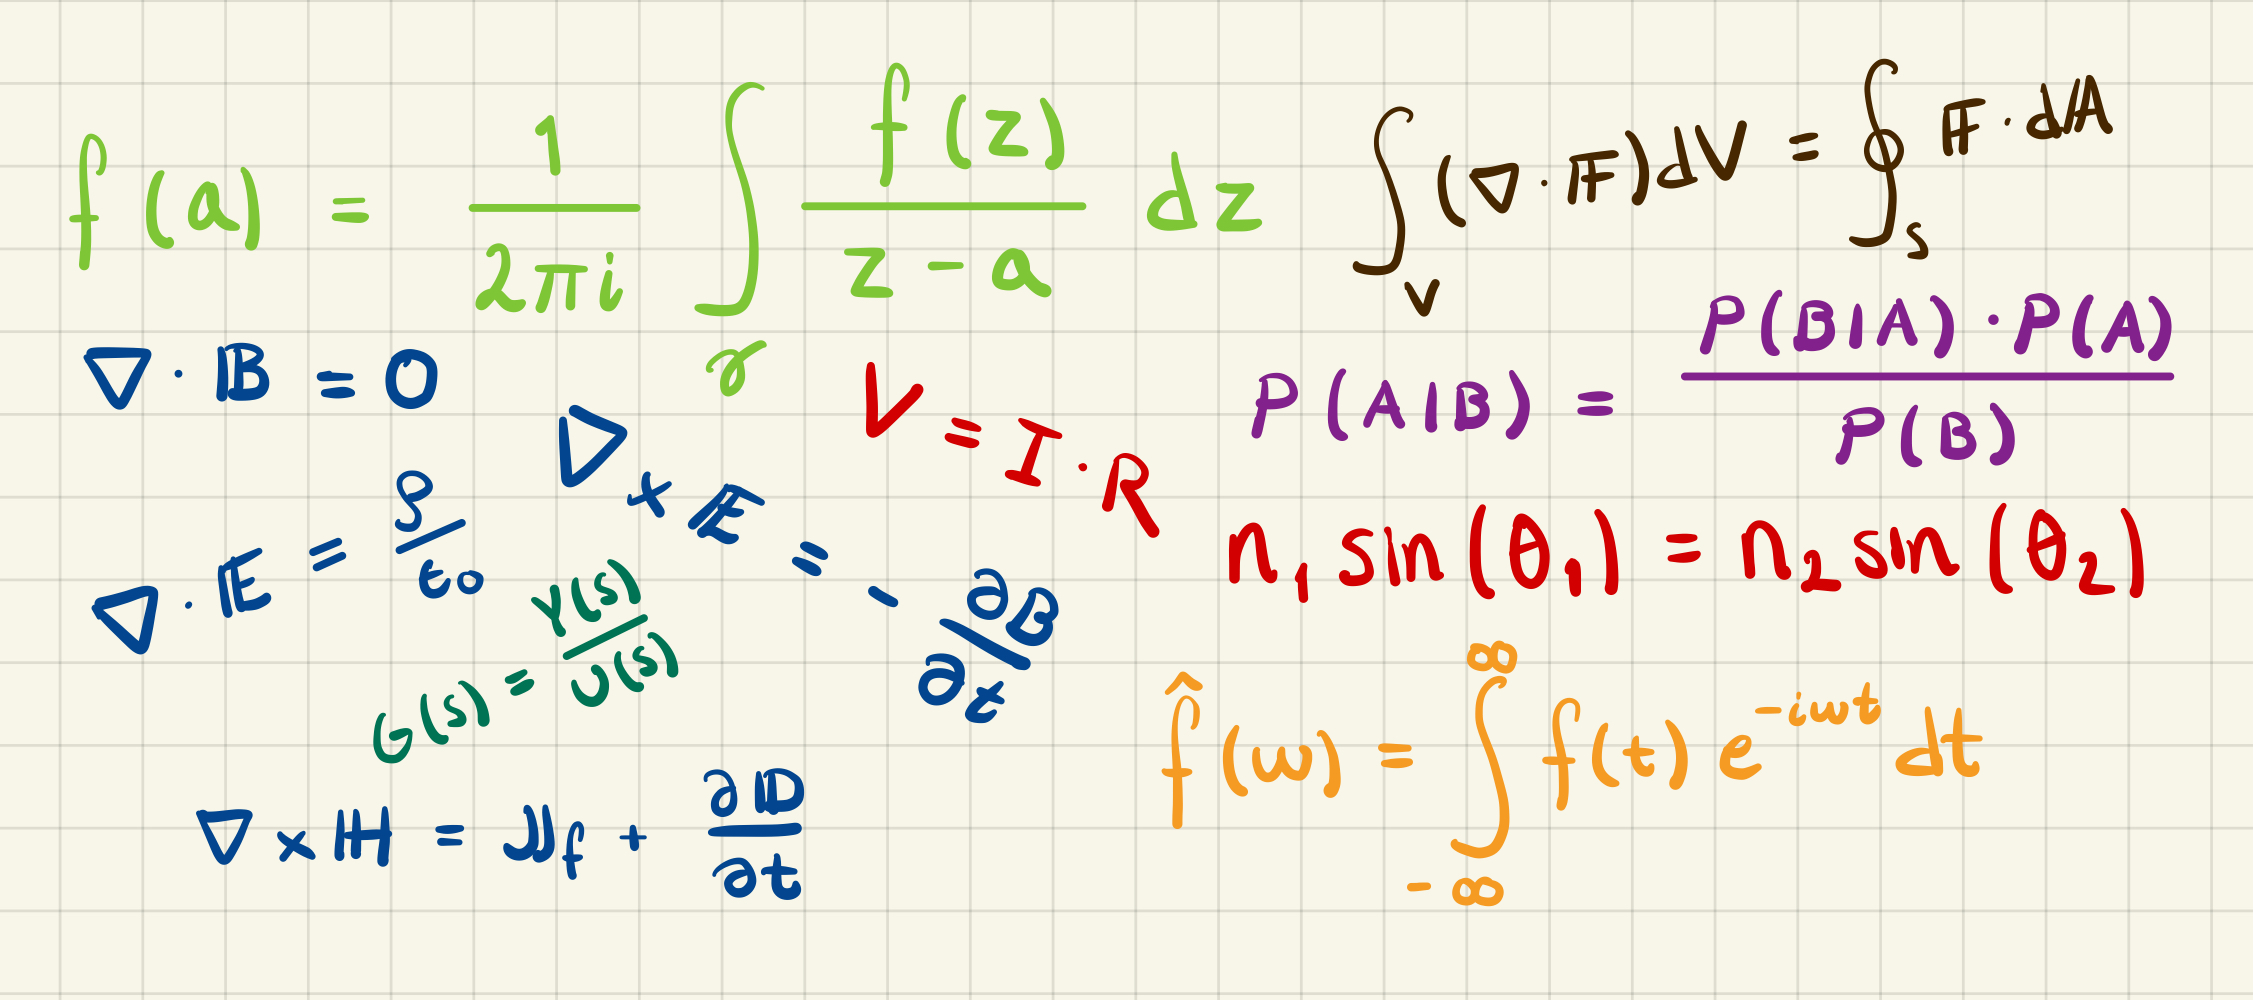 f(a) = 1/(2πi) ∫_γ f(z)/(z-a) dz
∫_V (∇·𝔽)dV = ∮_S 𝔽·d𝔸
∇·𝔹 = 0
P(A|B) = P(B|A)·P(A)/P(B)
V = I·R
∇×𝔼 = -∂𝔹/∂t
∇·𝔼 = ρ/ε₀
n₁ sin(θ₁) = n₂ sin(θ₂)
G(s) = Y(s)/U(s)
f̂(ω) = ∫_{-∞}^{∞} f(t) e^{-iωt} dt
∇×ℍ = 𝕁_f + ∂𝔻/∂t